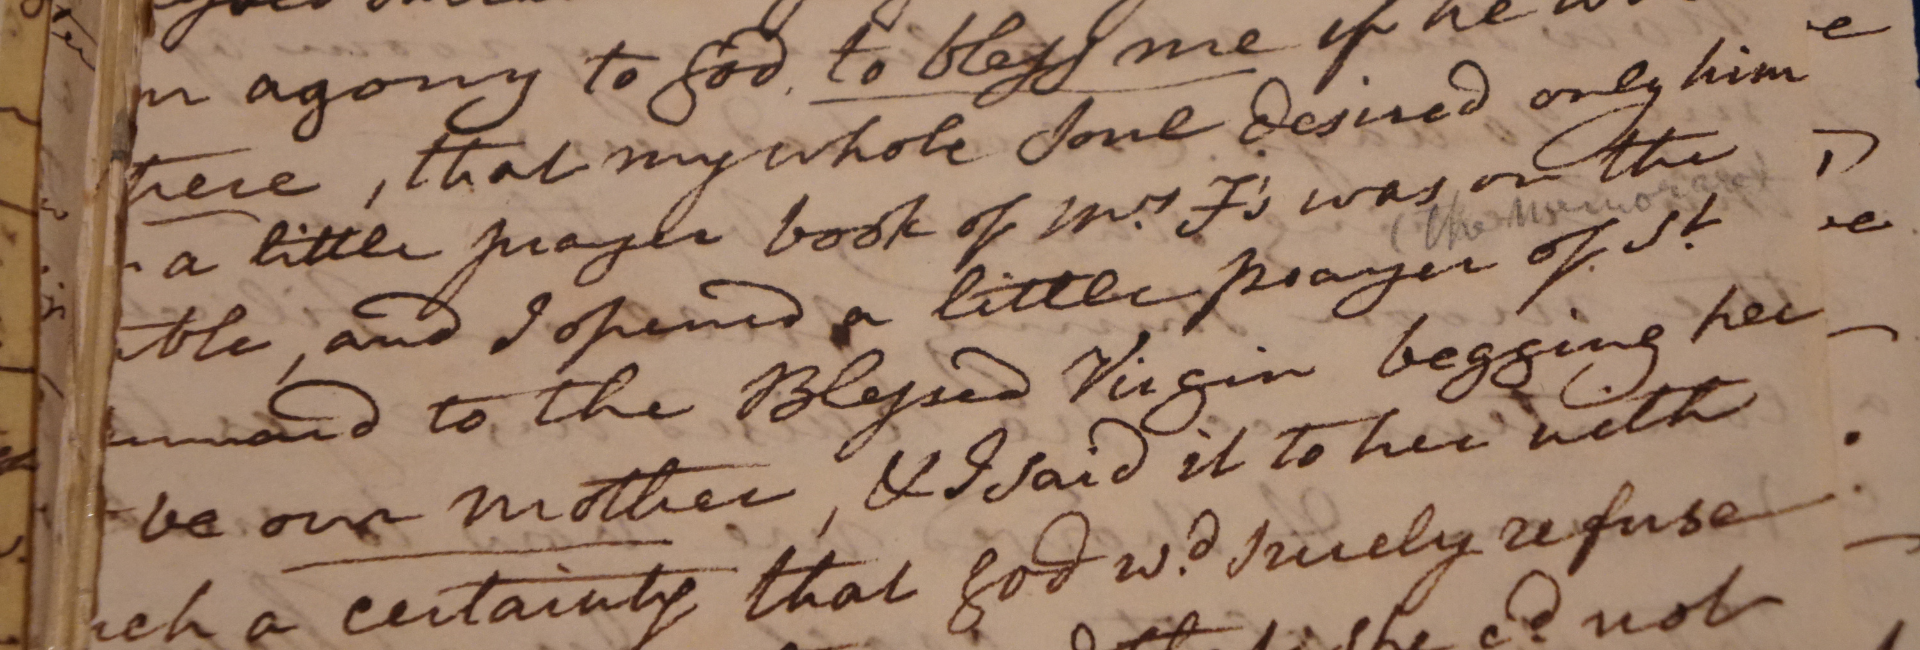 agony to God, to bless me if he
there, that my whole Soul desired only him
a little prayer book of Mrs F's was on the
(the Memorare)
ble, and I opened a little prayer of St
to the Blessed Virgin begging her
be our mother, & I said it to her with
ch a certainty that God wd surely refuse
she cd not